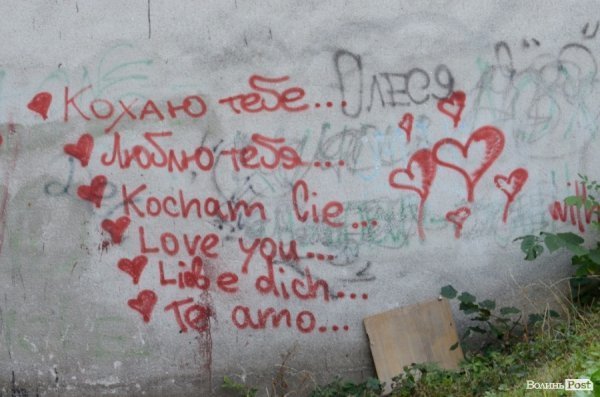 Кохаю тебе...
Олеся
Люблю тебя...
Kocham Cie...
Love you...
Liebe dich...
Te amo...
Волинь Post